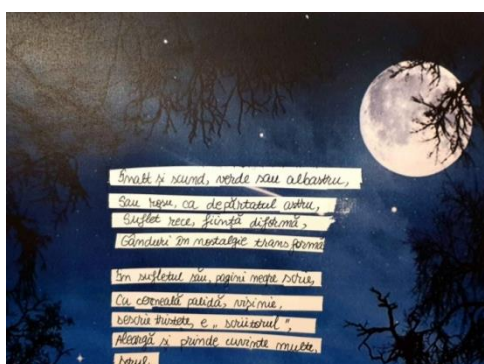 Înalt și scund, verde sau albastru,
Sau roșu, ca depărtatul astru,
Suflet rece, ființă diformă,
Gânduri în nostalgie transformă
În sufletul său, pagini negre scrie,
Cu cerneală palidă, vișinie,
Descrie tristețe, e „scriitorul",
Aleargă și prinde cuvinte multe,